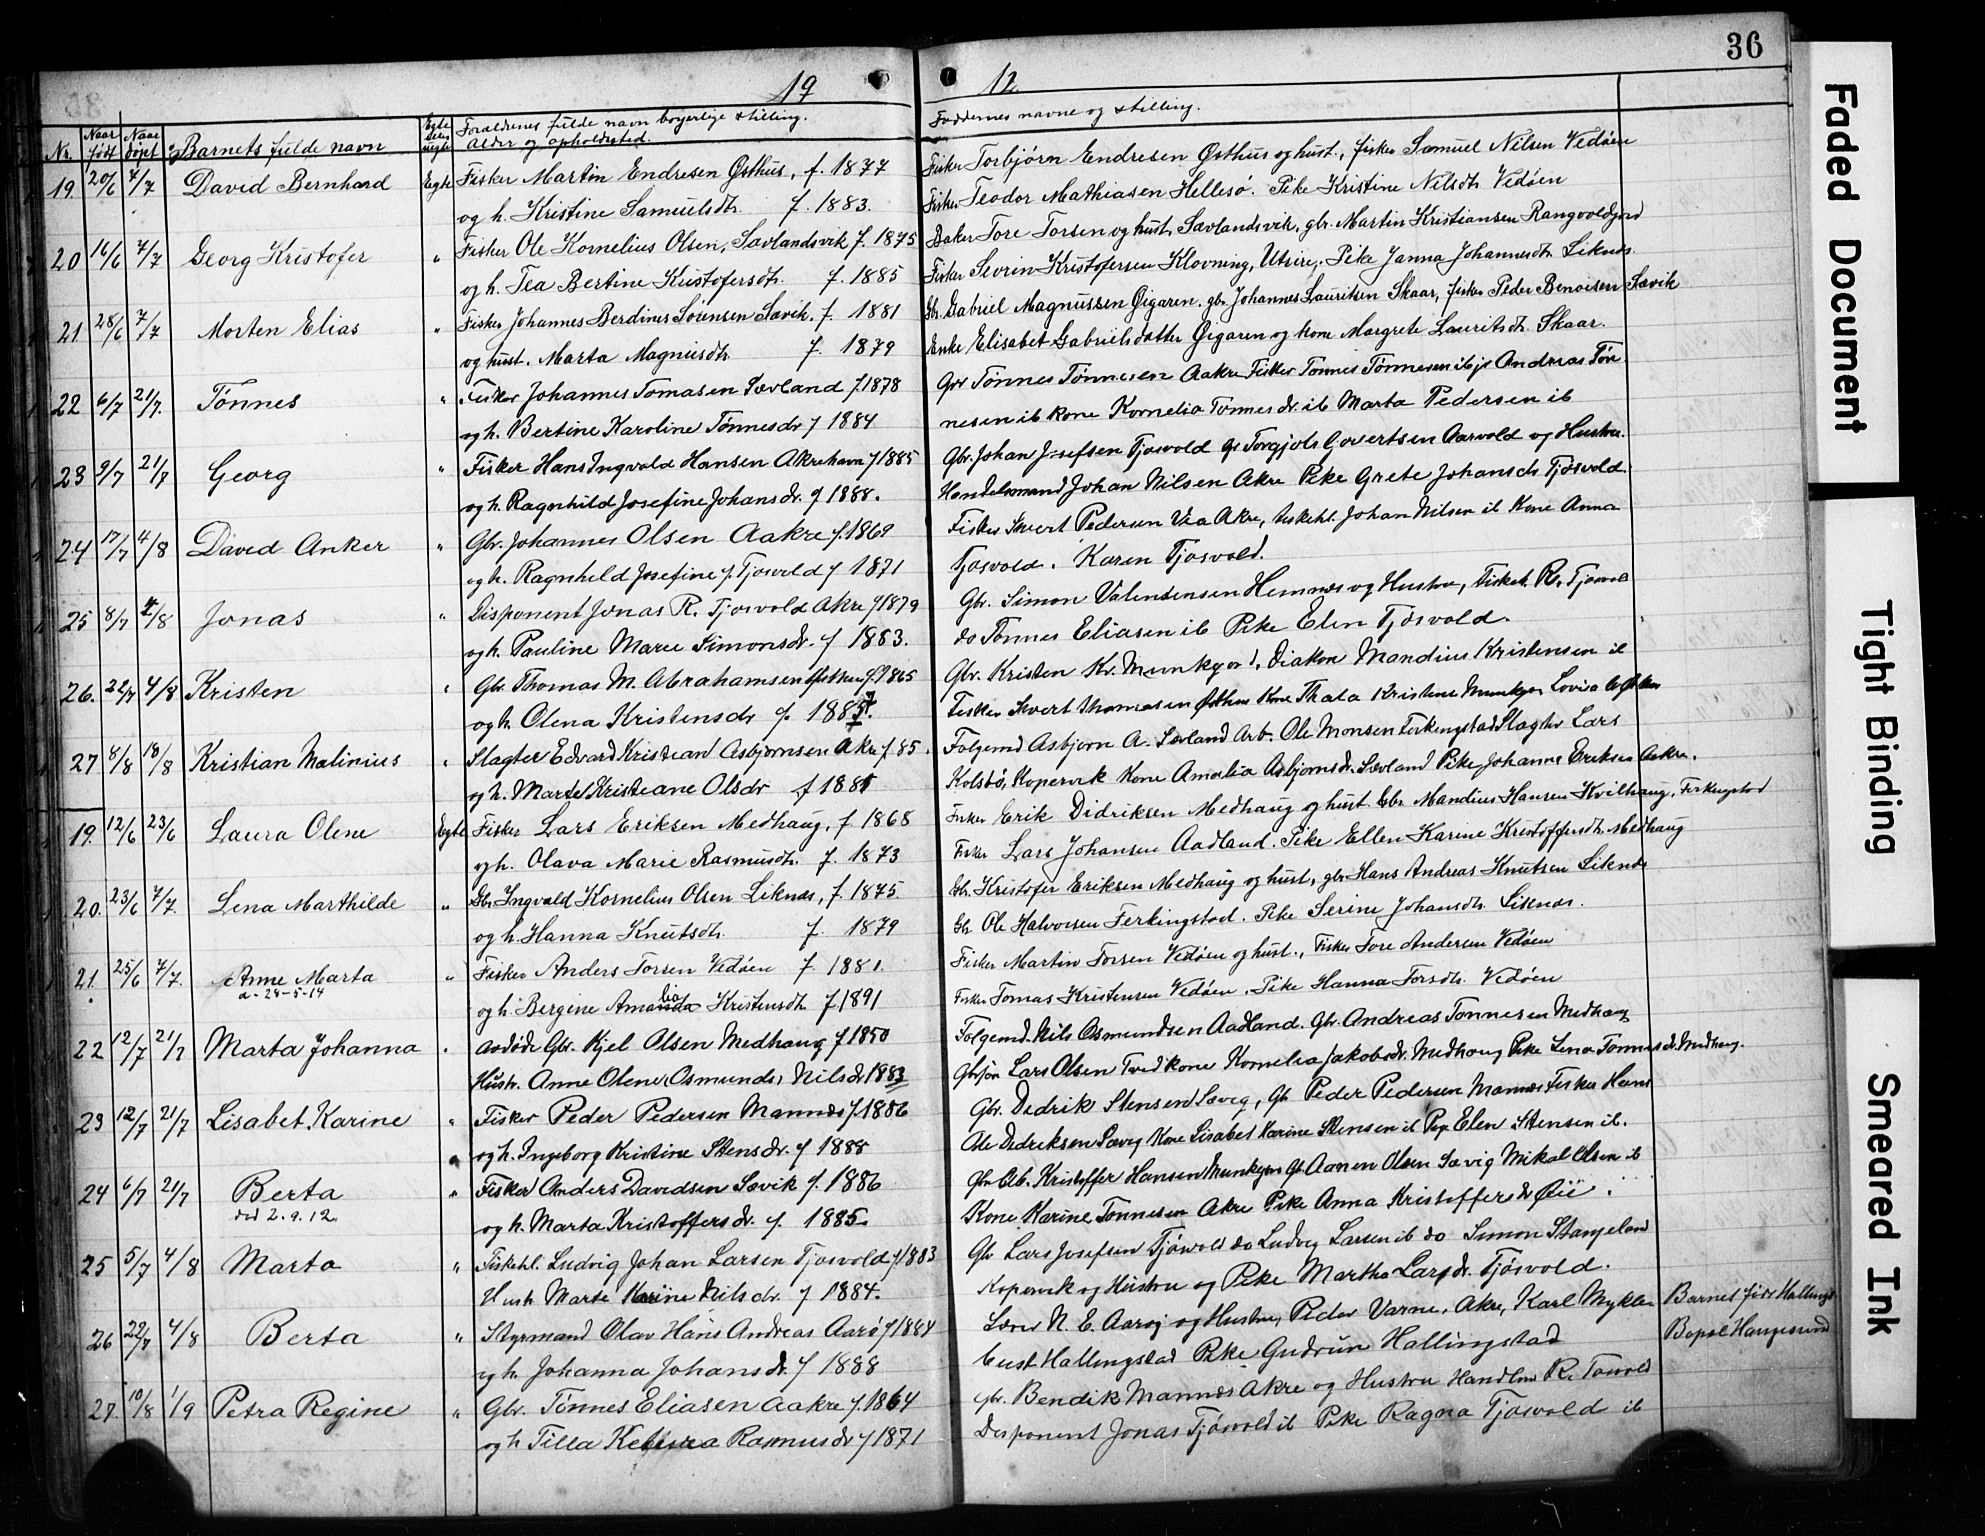 36
19 12
Nr. Naar født Naar døpt Barnets fulde navn Egte Forældrenes fulde navn borgerlige stilling, alder og opholdssted. Faddernes navne og stilling.
19. 20/6 7/7 David Bernhard Egte Fisker Martin Endresen Østhus, f. 1877 Fisker Torbjørn Endresen Østhus og hust., fisker Samuel Nilsen Vedøen
og h. Kristine Samuelsdtr. f. 1883. Fisker Teodor Mathiasen Hellesø. Pike Kristine Nilsdtr. Vedøen
20 16/6 7/7 Georg Kristofer " Fisker Ole Kornelius Olsen, Sævlandsvik f. 1875 Baker Tore Torsen og hust. Sævlandsvik, gbr. Martin Kristiansen
og h. Tea Bertine Kristofersdtr. f. 1885 Fisker Sevrin Kristofersen Klovning, Utsire, Pike Janna Johannesdtr. Liknes
21 28/6 7/7 Morten Elias " Fisker Johannes Berdines Sørensen Sævik, f. 1881 Gbr. Gabriel Magnussen Øigaren, gbr. Johannes Lauritsen Skaar, fisker Peder Sævik
og hust. Marta Magnusdtr. f. 1879 Enke Elisabet Gabrielsdatter Øigaren og kone Margrete Lauritsdtr. Skaar.
22 6/7 21/7. Tønnes " Fisker Johannes Tomasen Sævland f. 1878 Gbr Tønnes Tønnesen Aakre Fisker Tønnes Tønnesen ib Andreas Tøn
og h. Bertine Karoline Tønnesdr f 1884 nesen ib kone Kornelia Tønnesdr. ib Marta Pedersen ib
23 9/7 21/7 Georg " Fisker Hans Ingvald Hansen Akrehavn f 1885 Gbr. Johan Josefsen Tjøsvold Torgjuls Govertsen Aarvold og Hustru.
og h. Ragnhild Josefine Johansdr. f 1888. Handelsmand Johan Nilsen Akre Pike Grete Johansdr. Tjøsvold.
24 17/7 4/8 David Anker " Gbr. Johannes Olsen Aakre f. 1869 Fisker Sivert Pedersen Vea Akre, Johan Nilsen ib Kone Anna
og h. Ragnhild Josefine J. Tjøsvold f 1871 Tjøsvold. Karen Tjøsvold.
25 8/7 4/8 Jonas " Disponent Jonas R. Tjøsvold Akre f 1879 Gbr. Simon Valentensen Hemnes og Hustru, Fiskeh. R. Tjøsvold
og h. Pauline Marie Simonsdr. f 1883. do Tønnes Eliasen ib Pike Elen Tjøsvold.
26. 22/7 4/8 Kristen " Gbr. Thomas M. Abrahamsen Østhus f 1865 Gbr. Kristen Kr. Munkejor, Diakon Mandius Kristensen ib
og h. Olena Kristensdr f. Fisker Sivert Thomasen Østhus Kone Thala Kristine Lovisa
27 8/8 18/8 Kristian Malinius " Slagter Edvard Kristian Asbjørnsen Akre f. 85. Folgemd Asbjørn A. Sævland Arb. Ole Monsen Ferkingstad Slagter Lars
og h. Marte Kristiane Olsdr f 1881 Kolstø, Kopervik Kone Amalia Asbjornsdr. Sævland Pike Johanne Eriksen Aakre.
19. 12/6 23/6 Laura Olene Egte Fisker Lars Eriksen Medhaug, f. 1868 Fisker Erik Didriksen Medhaug og hust. Gbr. Mandius Hansen Kvilhaug, Ferkingstad
og h. Olava Marie Rasmusdtr. f. 1873 Fisker Lars Johansen Aadland. Pike Ellen Karine Kristoffersdtr. Medhaug
20. 23/6 7/7. Lena Marthilde " Gbr. Ingvald Kornelius Olsen Liknes, f. 1875. Gbr. Kristofer Eriksen Medhaug og hust, gbr. Hans Andreas Knutsen Liknes
og h. Hanna Knutsdtr. f. 1879 Gbr. Ole Halvorsen Ferkingstad. Pike Serine Johansdtr. Liknes.
21. 25/6 7/7. Anne Marta " Fisker Anders Torsen Vedøen f. 1881. Fisker Martin Torsen Vedøen og hust., Fisker Tore Andersen Vedøen
d. 28-5-14 og h. Bergine Amanda Kristensdtr. f. 1891 Fisker Tomas Kristensen Vedøen. Pike Hanna Torsdtr. Vedøen
22 12/7 21/7 Marta Johanna " avdøde Gbr. Kjel Olsen Medhaug f 1850 Folgemd. Nils Osmundsen Aadland. Gbr. Andreas Tønnesen Medhaug
Hustr. Anne Olene Osmunds, Nilsdr 1883 Lars Olsen Tved kone Kornelia Jakobsdr. Medhaug Pike Lena Tønnesdr. Medhaug.
23 12/7 21/7 Lisabet Karine " Fisker Peder Pedersen Mannes f. 1886 Gbr. Didrik Stensen Sævig, Gbr Peder Pedersen Mannes Fisker Hans
og h. Ingeborg Kristine Stensdr. f 1888 Ole Didriksen Sævig Kone Lisabet Karine Stensen ib Pige Elen Stensen ib.
24 6/7 21/7 Berta " Fisker Anders Davidsen Sævik f. 1886 Kristoffer Hansen Munkejor Gbr Aanen Olsen Sævig Mikal Olsen ib
død 2.9.12. og h. Marta Kristoffersdr. f. 1885. Kone Karine Tønnesen Akre Pike Anna Kristoffersdr
25 5/7 4/8 Marta " Fiskehl. Ludvig Johan Larsen Tjøsvold f 1883 Gbr Lars Josefsen Tjøsvold do Ludvig Larsen ib do Simon Stangeland
Hustr. Marte Karine Nilsdr. f 1884. Kopervik og Hustru og Pike Martha Larsdr. Tjøsvold.
26 22/7 4/8 Berta " Styrmand Olav Hans Andreas Aarø f 1884 Lærer N. E. Aarøy og Hustru, Peder Varne, Akre, Karl Mykle Barnet født Hallings
og h. Johanna Johansdr. f 1888 bust Hallingstad Pike Gudrun Hallingstad Bopæl Haugesund
27. 10/8 1/9 Petra Regine " Gbr. Tønnes Eliasen Aakre f. 1864 gbr. Bendik Mannes Akre og Hustru R. Tøsvold
og h Tilla Rasmusdr f 1871 Desponent Jonas Tjøsvold ib Pike Ragna Tjøsvold ib
Faded Document
Tight Binding
Smeared Ink